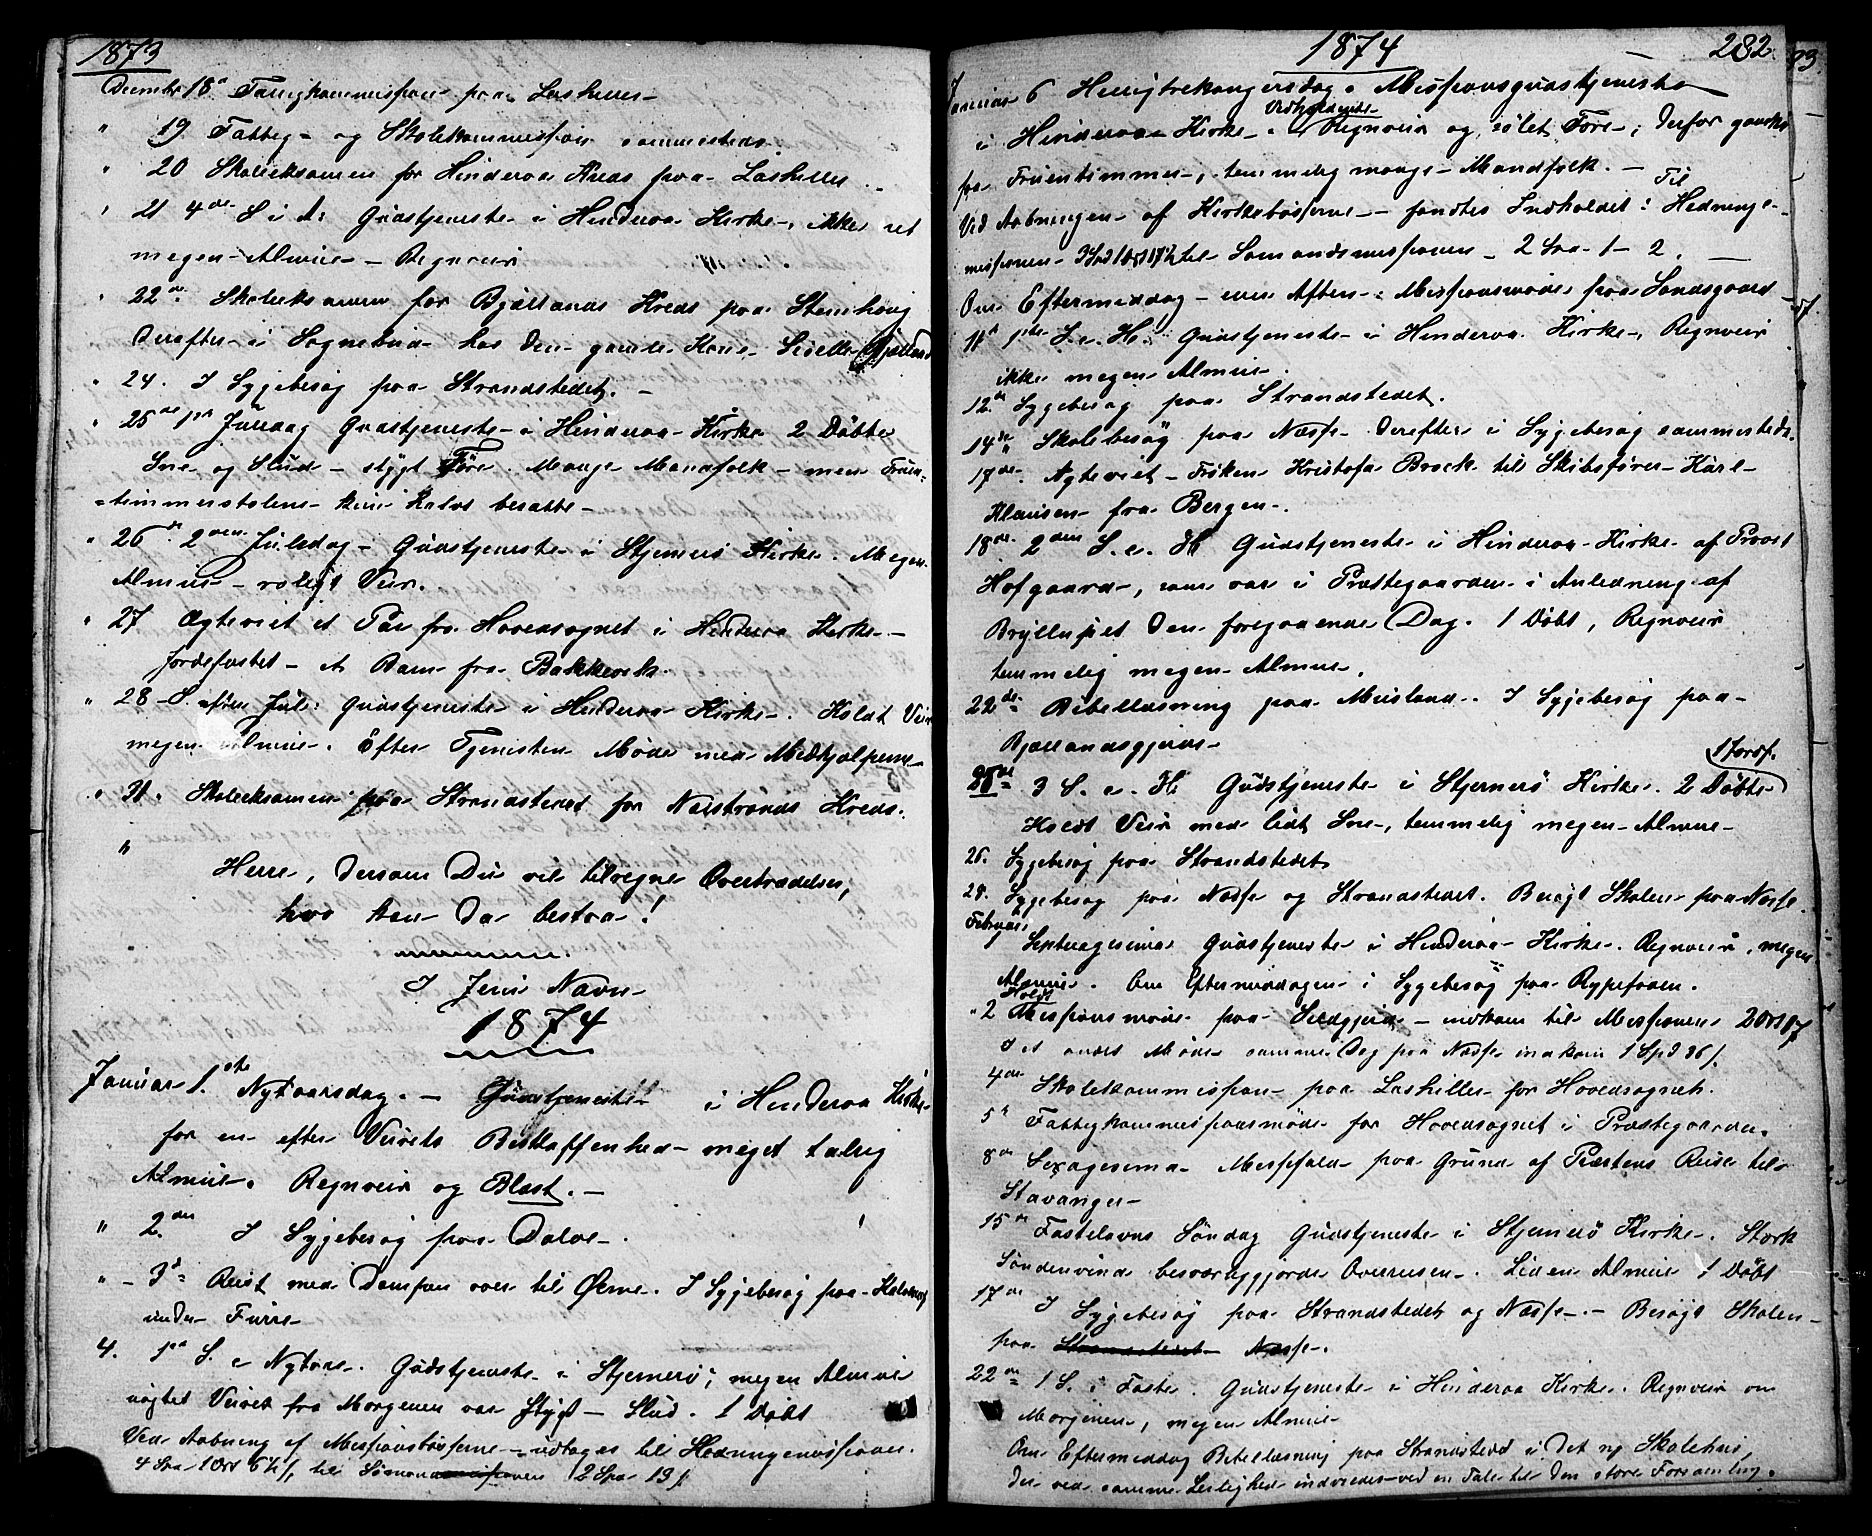 1873
December 18de Fattigkommission paa Lashiller
" 19 Fattig- og Skolekommission sammesteds
" 20 Skoleeksamen for Hinderaa Kreds paa Lashiller
" 21 4de S i A. Gudstjeneste i Hinderaa Kirke, ikke ret
megen Almue – Regnveir
" 22de Skoleeksamen for Bjelland Kreds paa Steinhoug
Derefter i Sognebud hos den gamle Kone Bjelland
" 24. I Sygebesøg paa Strandstedet. –
" 25de 1ste Juledag Gudstjeneste i Hinderaa Kirke 2 Døbte
Sne og Slud – stygt Føre. Mange Mandfolk – men Fruen-
timmerstolene kun halvt besatte –
" 26de 2den Juledag – Gudstjeneste i Stjernerø Kirke. Megen
Almue – roligt Veir.
" 27 Ægteviet et Par fra Hovedsognet i Hinderaa Kirke –
Jordfæstet – et Barn fra Bakkevik.
" 28 S. efter Jul: Gudstjeneste i Hinderaa Kirke. Koldt Veir
megen Almue. Efter Tjenesten Møde med Medhjælperne
" 31. Skoleeksamen paa Strandstedet for Nerstrands Kreds.
"
Herre, dersom Du vil tilregne Overtrædelser,
hvo kan da bestaa!
I Jesu Navn
1874
Januar 1ste Nytaarsdag. – Gudstjeneste i Hinderaa Kirke
for en efter Veirets Beskaffenhed meget talrig
Almue. Regnveir og Blæst. –
" 2den I Sygebesøg paa Dalve
" – 3de Reist med Dampen over til Øerne. I Sygebesøg paa
under Furre
4. 1ste S. e Nytaar. Gudstjeneste i Stjernerø; megen Almue
uagtet Veiret fra Morgenen var stygt – Slud. 1 Døbt
Ved Aabning af Missionsbøsserne – udtoges til Hedningemissionen
4 Spd 1 Ort 6½ ſ, til Sømandsmissionen 2 Spd 19 ſ
1874
282.
Januar 6 Helligtrekongersdag. Missionsgudstjeneste
i Hinderaa Kirke. Vedholdende Regnveir og sølet Føre; derfor ganske
faa Fruentimmer, temmelig mange Mandfolk. –
Ved Aabningen af Kirkebøsserne – fandtes Indholdet: Til Hedninge-
missionen 3 Spd 1 Ort 17½ til Sømandsmissionen – 2 Spd – 1 – 2.
Om Eftermiddag – eller Aften: Missionsmøde paa Sandsgaard
11te 1ste S. e. H. Gudstjeneste i Hinderaa Kirke, Regnveir
ikke megen Almue.
12te Sygebesøg paa Strandstedet.
14de Skolebesøg paa Næsse Derefter i Sygebesøg sammesteds.
17de Ægteviet – Frøken Kristofa Brock til Skibsfører Karl
Klausen fra Bergen.
18de 2den S. e. H Gudstjeneste i Hinderaa Kirke af Provst
Hofgaard, som var i Præstegaarden i Anledning af
Bryllupet den foregaaende Dag. 1 Døbt, Regnveir
temmelig megen Almue.
22de Bibellæsning paa Meisland. I Sygebesøg paa
Bjellandsgjerde
25de 3 S. e. H. Gudstjeneste i Stjernerø Kirke. 2 Døbte 1 Jordf.
Koldt Veir med lidt Sne, temmelig megen Almue
26. Sygebesøg paa Strandstedet
28. Sygebesøg paa Næsse og Strandstedet. Besøgt Skolen paa Næsse.
Februar 1 Septuagesima Gudstjeneste i Hinderaa Kirke. Regnveir, megen
Almue. Om Eftermiddagen i Sygebesøg paa Rypefoen.
" 2 Holdt Missionsmøde paa – indkom til Missionen 2 Ort 17
I et andet Møde samme Dag paa Næsse indkom 1 Spd 36 ſ.
4de Skolekommission paa Lashiller for Hovedsognet.
5te Fattigkommissionsmøde for Hovedsognet i Præstegaarden.
8de Sexagesima Messefald paa Grund af Præstens Reise til
Stavanger
15de Fastelavns Søndag Gudstjeneste i Stjernerø Kirke. Stærk
Søndenvind besværliggjorde Overreisen. Liden Almue 1 Døbt
17de I Sygebesøg paa Strandstedet og Næsse. – Besøgt Skolen
paa Strandstedet Næsse.
22de 1 S. i Faste. Gudstjeneste i Hinderaa Kirke. Regnveir om
Morgenen, megen Almue
Om Eftermiddag Bibellæsning paa Strandsted i det ny Skolehus,
der ved samme Leilighed indviedes ved en Tale til den store Forsamling.